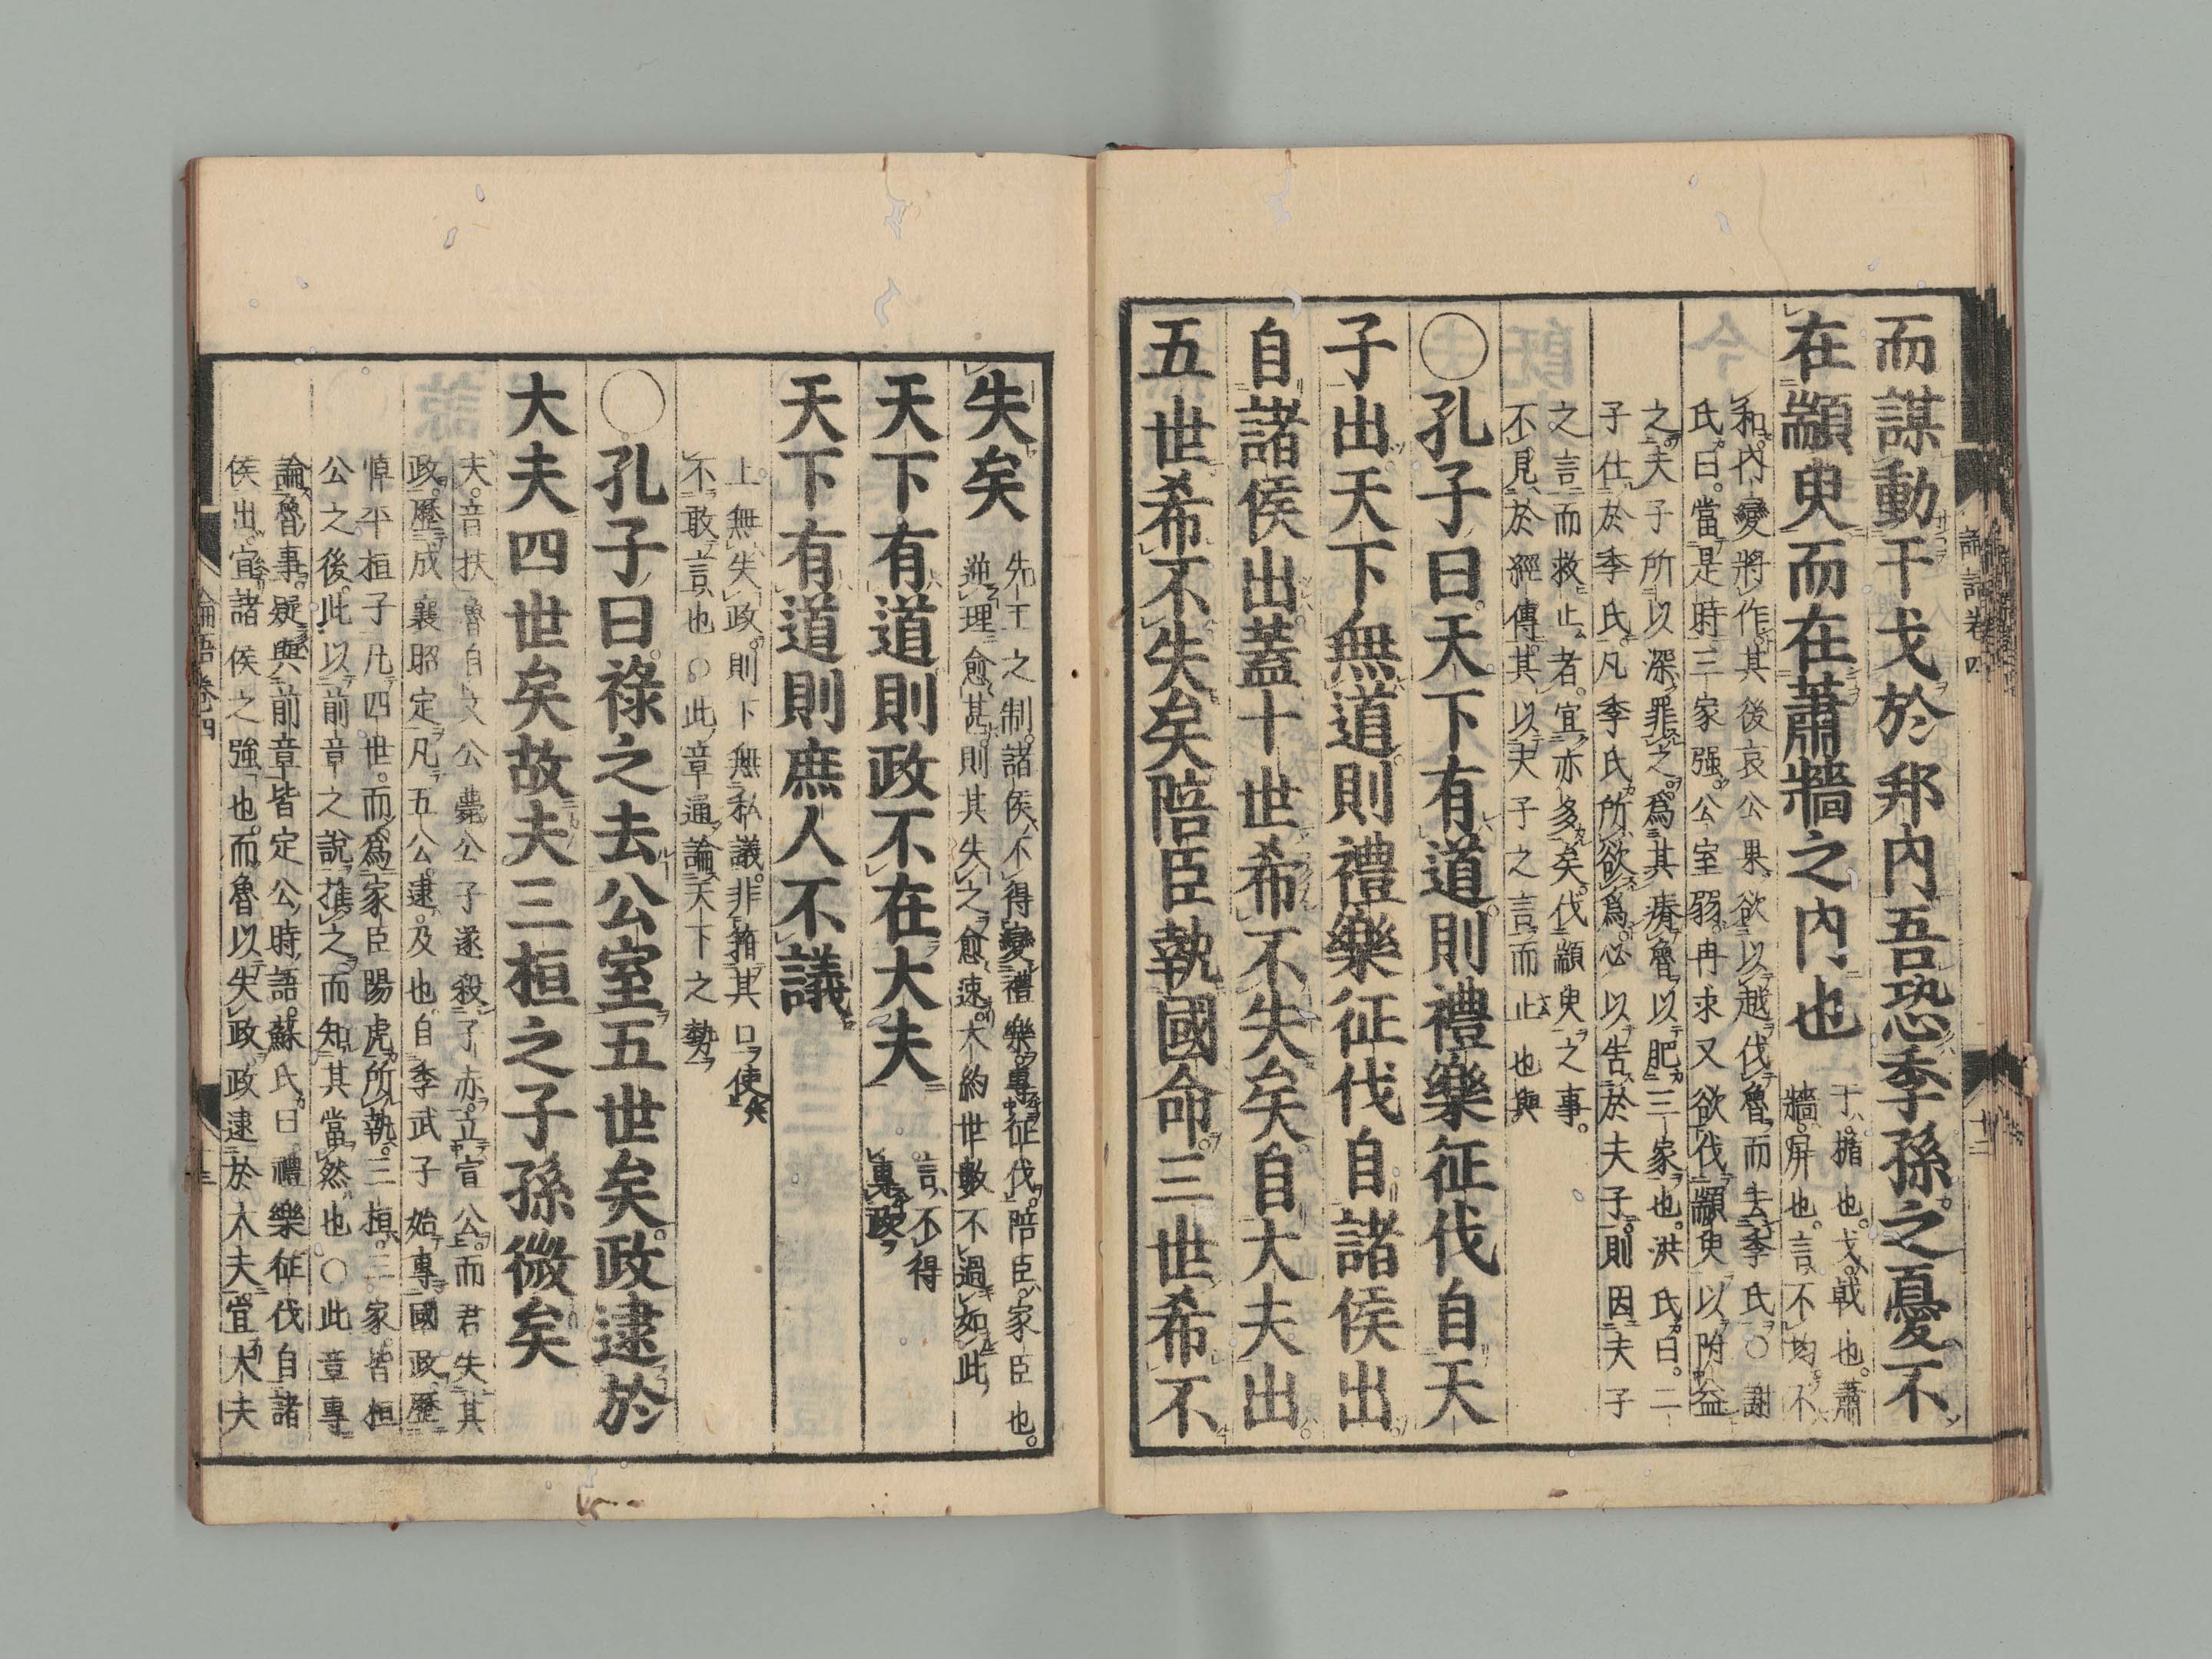 而謀動干戈於邦内吾恐季孫之憂不
在顓臾而在蕭牆之内也
干楯也。戈戟也。蕭
牆屏也。言不均不
和内變將作其後哀公果欲以越伐魯而去季氏〇謝
氏曰。當是時三家强公室弱冉求又欲伐顓臾以附益
之。夫子所以深罪之爲其瘠魯以肥三家也。洪氏曰。二
子仕於季氏。凡季氏所欲爲必以告於夫子則因夫子
之言而救止者。宜亦多矣。伐顓臾之事。
不見於經傳其以夫子之言而止也與
〇孔子曰。天下有道則禮樂征伐自天
子出天下無道則禮樂征伐自諸侯出
自諸侯出。蓋十世希不失矣自大夫出
五世希不失矣陪臣執國命三世希不
論語卷四
十二
失矣
先王之制。諸侯不得變禮樂。專征伐。陪臣家臣也。
逆理愈甚則其失之愈速大約世數不過如此
天下有道則政不在大夫
言不得
專政
天下有道則庶人不議
上無失政。則下無私議。非箝其口使
不敢言也〇此章通論天下之勢
〇孔子曰祿之去公室五世矣政逮於
大夫四世矣故夫三桓之子孫微矣
夫。音扶魯自文公薨公子遂殺子赤。立宣公。而君失其
政。歷成襄昭定。凡五公。逮。及也自季武子始專國政歷
悼平桓子凡四世。而爲家臣陽虎所執。三桓三家皆桓
公之後。此以前章之說推之。而知其當然也〇此章專
論魯事。疑與前章皆定公時語。蘇氏曰禮樂征伐自諸
侯出。宜諸侯之強也。而魯以失政。政逮於大夫。宜大夫
論語卷四